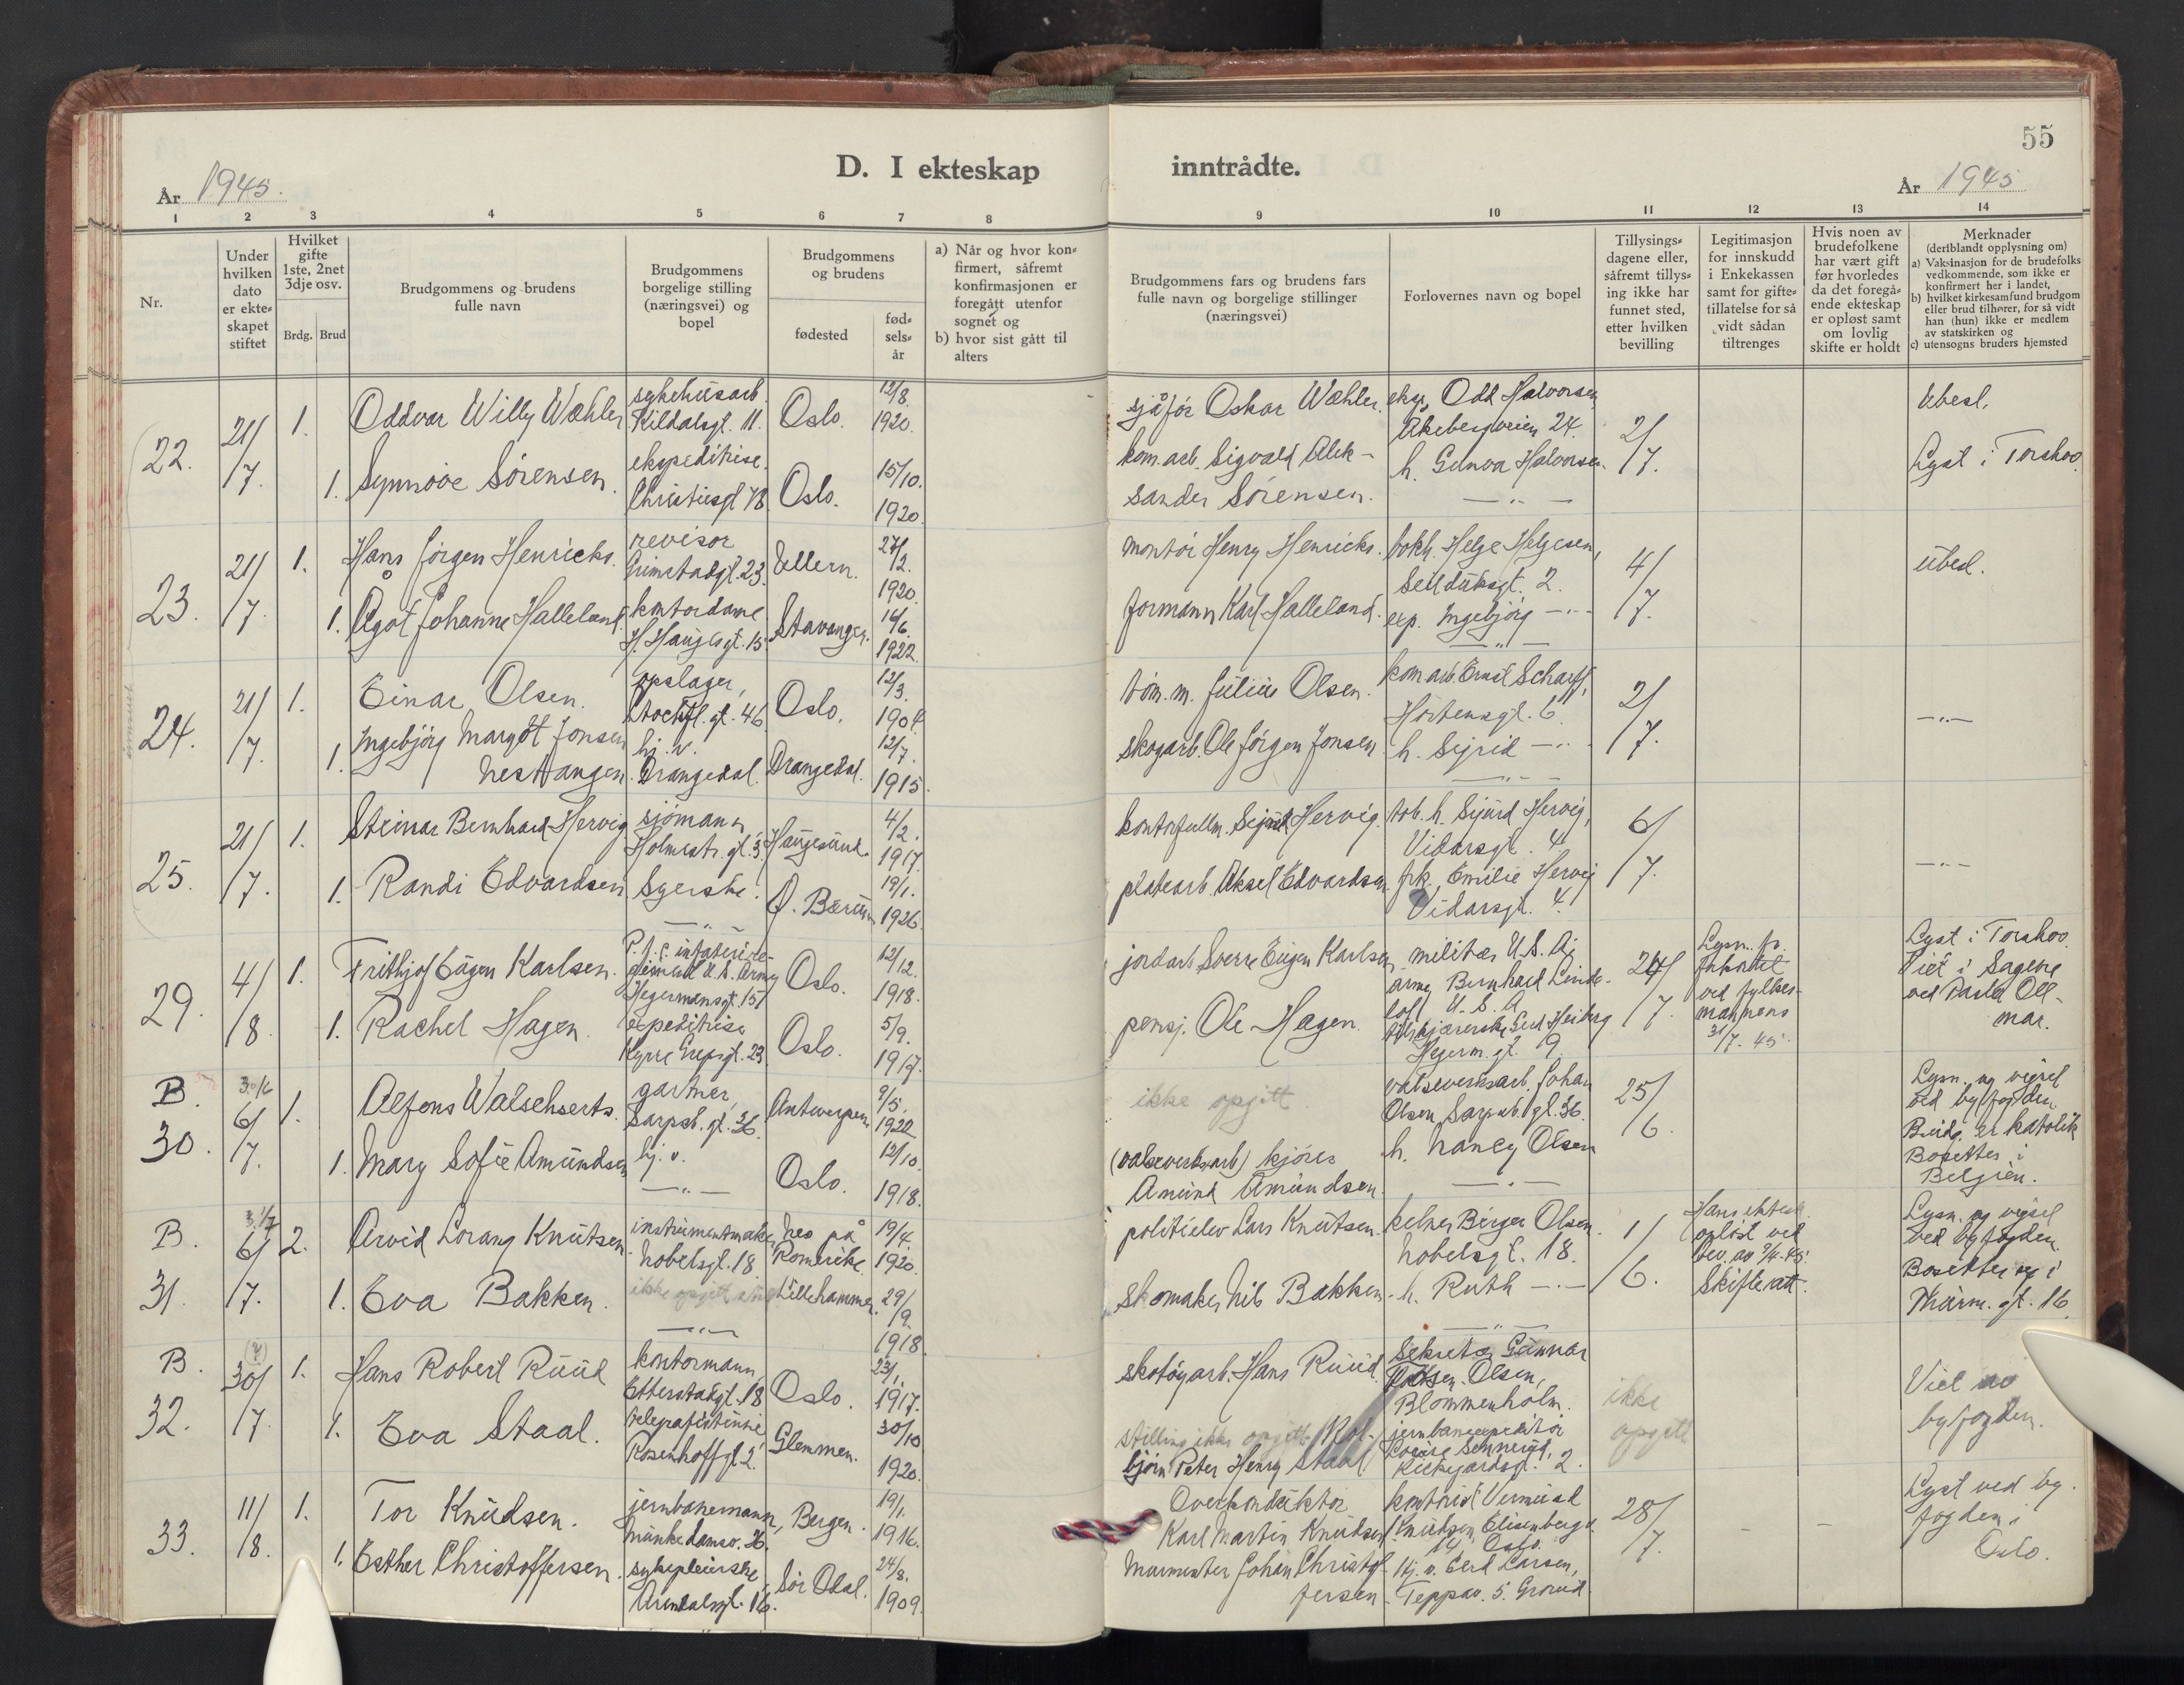 55
D. I ekteskap inntrådte.
År 1945.
År 1945
1 2 3 4 5 6 7 8 9 10 11 12 13 14
Nr.
Under
hvilken
dato
er ekte-
skapet
stiftet
Hvilket
gifte
1ste, 2net
3dje osv.
Brdg. Brud
Brudgommens og brudens
fulle navn
Brudgommens
borgelige stilling
(næringsvei) og
bopel
Brudgommens
og brudens
fødested
fød-
sels-
år
a) Når og hvor kon-
firmert, såfremt
konfirmasjonen er
foregått utenfor
sognet og
b) hvor sist gått til
alters
Brudgommens fars og brudens fars
fulle navn og borgelige stillinger
(næringsvei)
Forlovernes navn og bopel
Tillysings-
dagene eller,
såfremt tillys-
ing ikke har
funnet sted,
etter hvilken
bevilling
Legitimasjon
for innskudd
i Enkekassen
samt for gifte-
tillatelse for så
vidt sådan
tiltrenges
Hvis noen av
brudefolkene
har vært gift
før hvorledes
da det foregå-
ende ekteskap
er opløst samt
om lovlig
skifte er holdt
Merknader
(deriblandt opplysning om)
a) Vaksinasjon for de brudefolks
vedkommende, som ikke er
konfirmert her i landet,
b) hvilket kirkesamfund brudgom
eller brud tilhører, for så vidt
han (hun) ikke er medlem
av statskirken og
c) utensogns bruders hjemsted
22.
21/
/7.
1.
Oddvar Willy Wæhler
sykehusarb.
Kildalsgt. 11.
Oslo.
12/8.
1920.
sjåfør Oskar Wæhler.
eksp. Odd Halvorsen
Åkebergveien 24.
2/
/7.
Ubesl.
1.
Synnøve Sørensen.
ekspeditrise.
Christiesgt 78
Oslo.
15/10.
1920.
kom.arb. Sigvald Alek-
sander Sørensen.
h. Gunva Halvorsen.
— " —
Lyst i Torshov.
23.
21/
/7.
1.
Hans Jörgen Henricks.
revisor
Grimstadgt. 23.
Ullern.
27/
12.
1920.
montør Henry Henricks.
bokh. Helge Helgesen,
Seilduksgt. 2.
4/
/7.
ubesl.
1.
Ågot Johanne Halleland
kontordame
H. Haugesgt. 15
Stavanger.
16/6.
1922.
formann Karl Halleland.
exp. Ingebjørg — " —
— " —
24.
21/
/7.
1.
Einar Olsen.
opslager,
Stockfl. gt. 46
Oslo.
12/3.
1904.
tøm. m. Julius Olsen.
kom arb. Ernst Scharff,
Hortensgt. 6.
2/
/7.
— " —
1.
Ingebjörg Margot Jonsen
Nesttangen.
hj. v.
Drangedal.
Drangedal.
12/7.
1915.
skogarb. Ole Jørgen Jonsen
h. Sigrid — " —
— " —
25.
21/
/7.
1.
Steinar Bernhard Hervig
sjømann
Holmestr. gt. 3
Haugesund.
4/2.
1917.
kontorfullm. Sigurd Hervig.
tob. h. Sigurd Hervig,
Vidarsgt. 4
6/
/7.
— " —
1.
Randi Edvardsen
Syerske.
— " —
Ø. Bærum
19/1.
1926.
platearb. Aksel Edvardsen
frk. Emilie Hervig
Vidarsgt. 4.
29.
4/
/8.
1.
Frithjof Eugen Karlsen.
P.f.c. infanterire-
giment U.S. Army
Hegermansgt. 15
Oslo.
12/12.
1918.
jordarb. Sverre Eugen Karlsen
militær U.S. A;
army Bernhard Linde-
lof U. S. A.
24/
/7.
Lysn. fr.
ved fylkes-
mannens
31/7. 45.
Lyst i Torshov.
Viet i Sagene
ved Pastor Oll-
mar.
1.
Rachel Hagen.
expeditrise
Kyrre Grepsgt. 23
Oslo.
5/9.
1917.
pensj. Ole Hagen.
tilskjærerske Gerd Heiberg
Hegerm. gt. 19
B.
30.
30/6
6/
/7.
1.
Alfons Walschserts.
gartner,
Sarpsb. gt. 36
Antwerpen
9/5.
1922
ikke opgitt
valseverksarb. Johan
Olsen, Sarpsb. gt. 36.
25/
/6.
Lysn. og vigsel
ved byfogden.
Brudg. er katolik
Bosettes i
Belgien.
1.
Mary Sofie Amundsen
hj. v.
— " —
Oslo.
12/10.
1918.
(valseverksarb) kjøres
Amund Amundsen.
h. Nancy Olsen
— " —
B.
31.
6/
/7.
2.
Arvid Lorang Knutsen.
instrumentmaker
Nobelsgt. 18.
Nes på
Romerike.
19/4.
1920.
politielev Lars Knutsen.
kelner Birger Olsen.
Nobelsgt. 18.
1/
/6.
Hans ektesk.
opløst ved
bev. av 9/4. 45.
Skifteatt.
Lysn. og vigsel
ved byfogden.
Bosetter sig i
gt. 16.
1.
Eva Bakken.
ikke opgitt
— " —
Lillehammer.
29/
9.
1918.
skomaker Nils Bakken
h. Ruth — " —
— " —
B.
32.
30/
/7.
1.
Hans Robert Ruud
kontormann
Etterstadgt. 18
Oslo.
23/1.
1917.
skotøyarb. Hans Ruud.
Sekretær Gunnar
Olsen,
Blommenholm.
ikke
opgitt
Viet av
byfogden.
1.
Eva Staal.
telegrafistinne
Rosenhoffgt. 2.
Glemmen.
30/10
1920.
stilling ikke opgitt Kol-
bjørn Peter Henry Staal
jernbaneexpeditør
Kirkegårdsgt. 2.
33.
11/
/8.
1.
Tor Knudsen.
jernbanemann,
Munkedamsv. 36.
Bergen.
19/1.
1916.
Overkonduktør
Karl Martin Knudsen
kontorist Vermund
Knudsen, Elisenbergv
14, Oslo.
28/
/7.
–
–
Lyst ved by.
fogden i
Oslo.
1.
Esther Christoffersen.
sykepleierske
Arendalsgt. 16.
Sør Odal.
24/8.
1909.
Murmester Johan Christof-
fersen
Hj. v. Gerd Larsen,
Teppav. 5. Grorud.